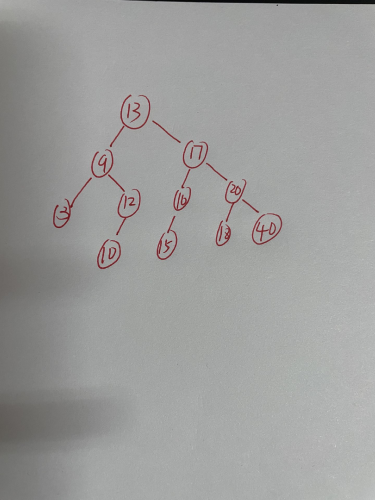 13
9 17
3 12 16 20
10 15 18 40